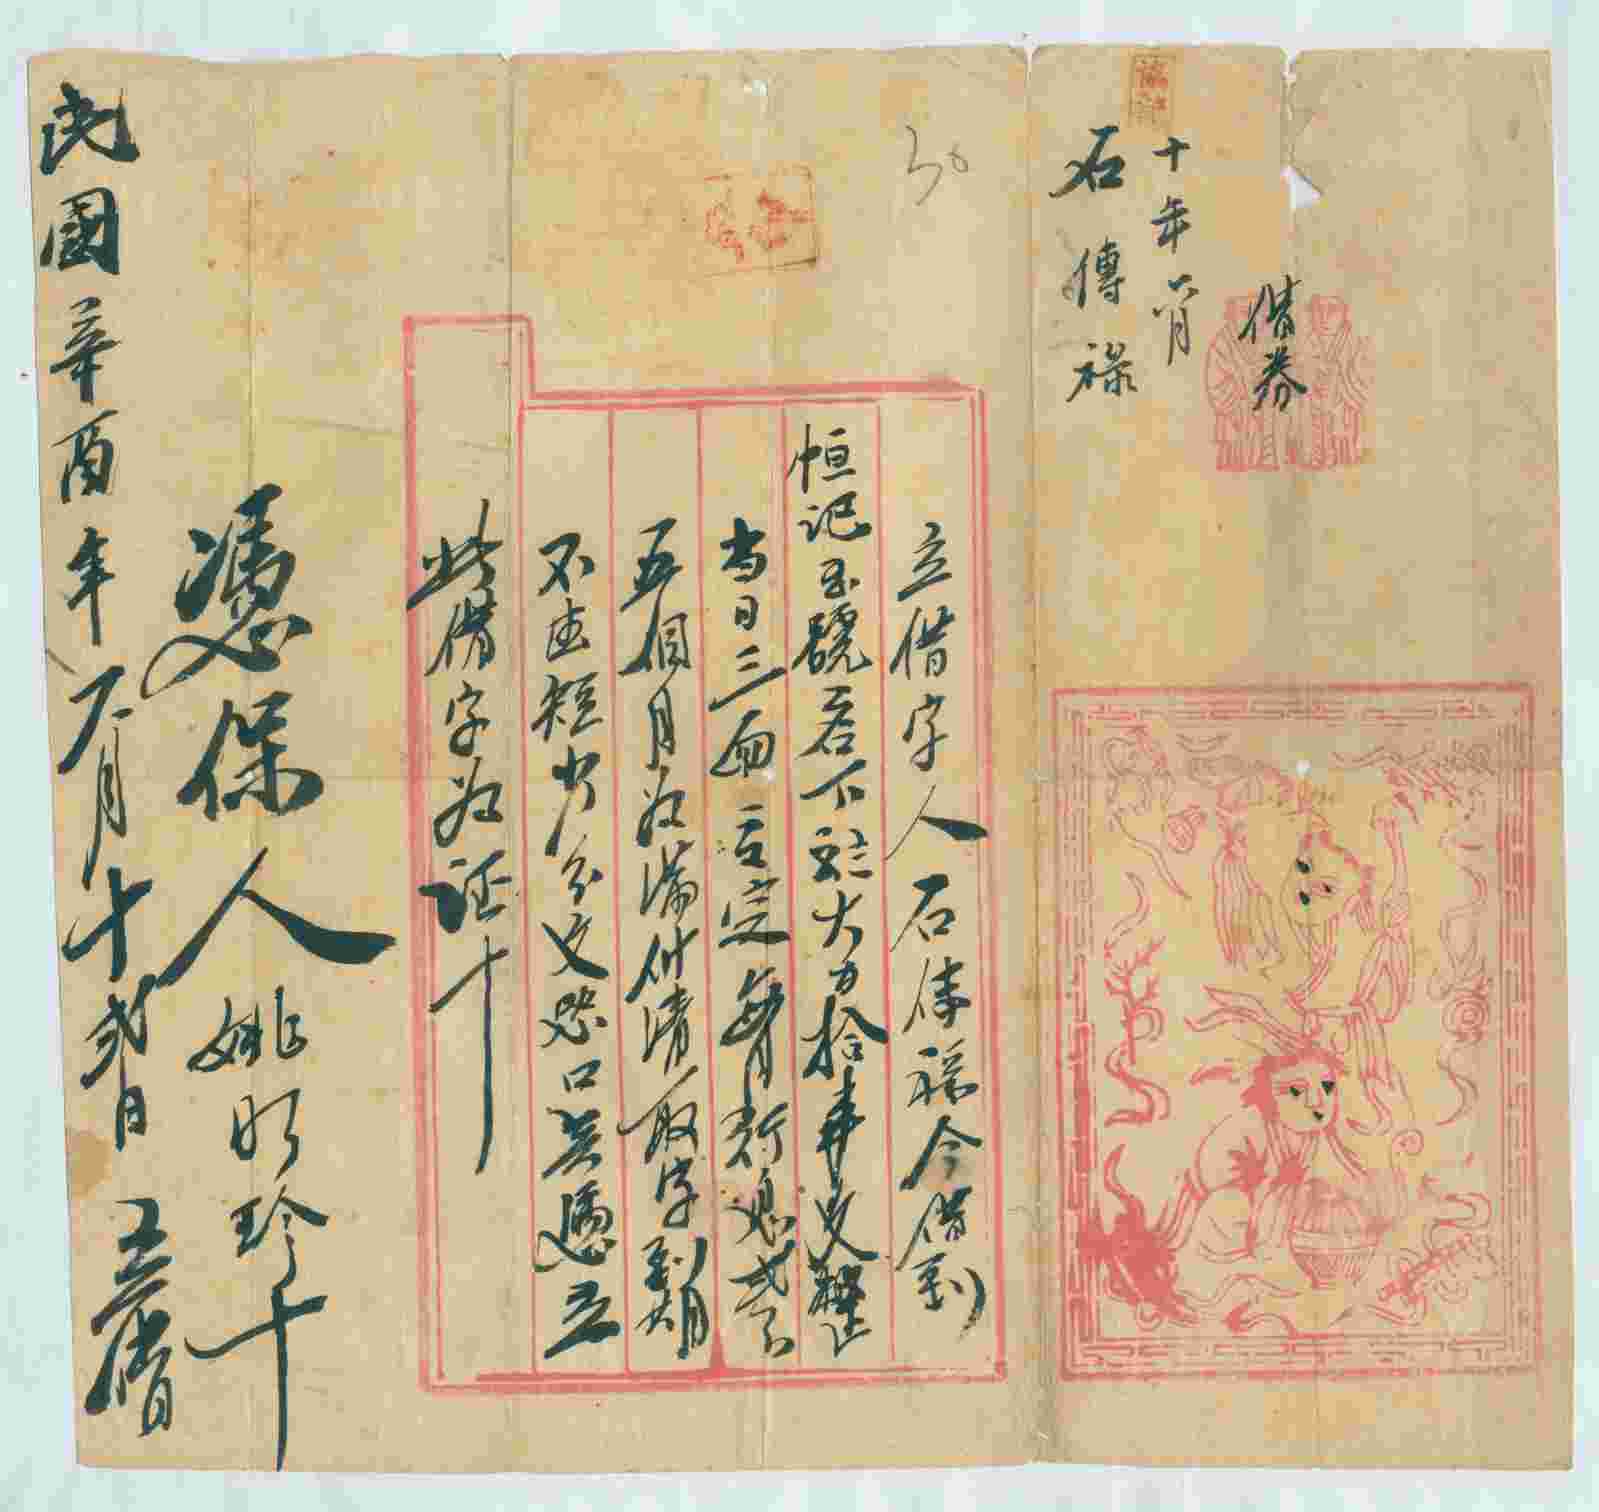 借券
十年六月
石傳祿
立借字人石傳祿今借到
恒記寶號名下大力拾弔文整
當日三面言定每月行息弍分
五個月為滿付清取字到期
不芷短少分文恐口無憑立
此借字為証十
憑保人姚明珍十
民國辛酉年六月十弍日立借